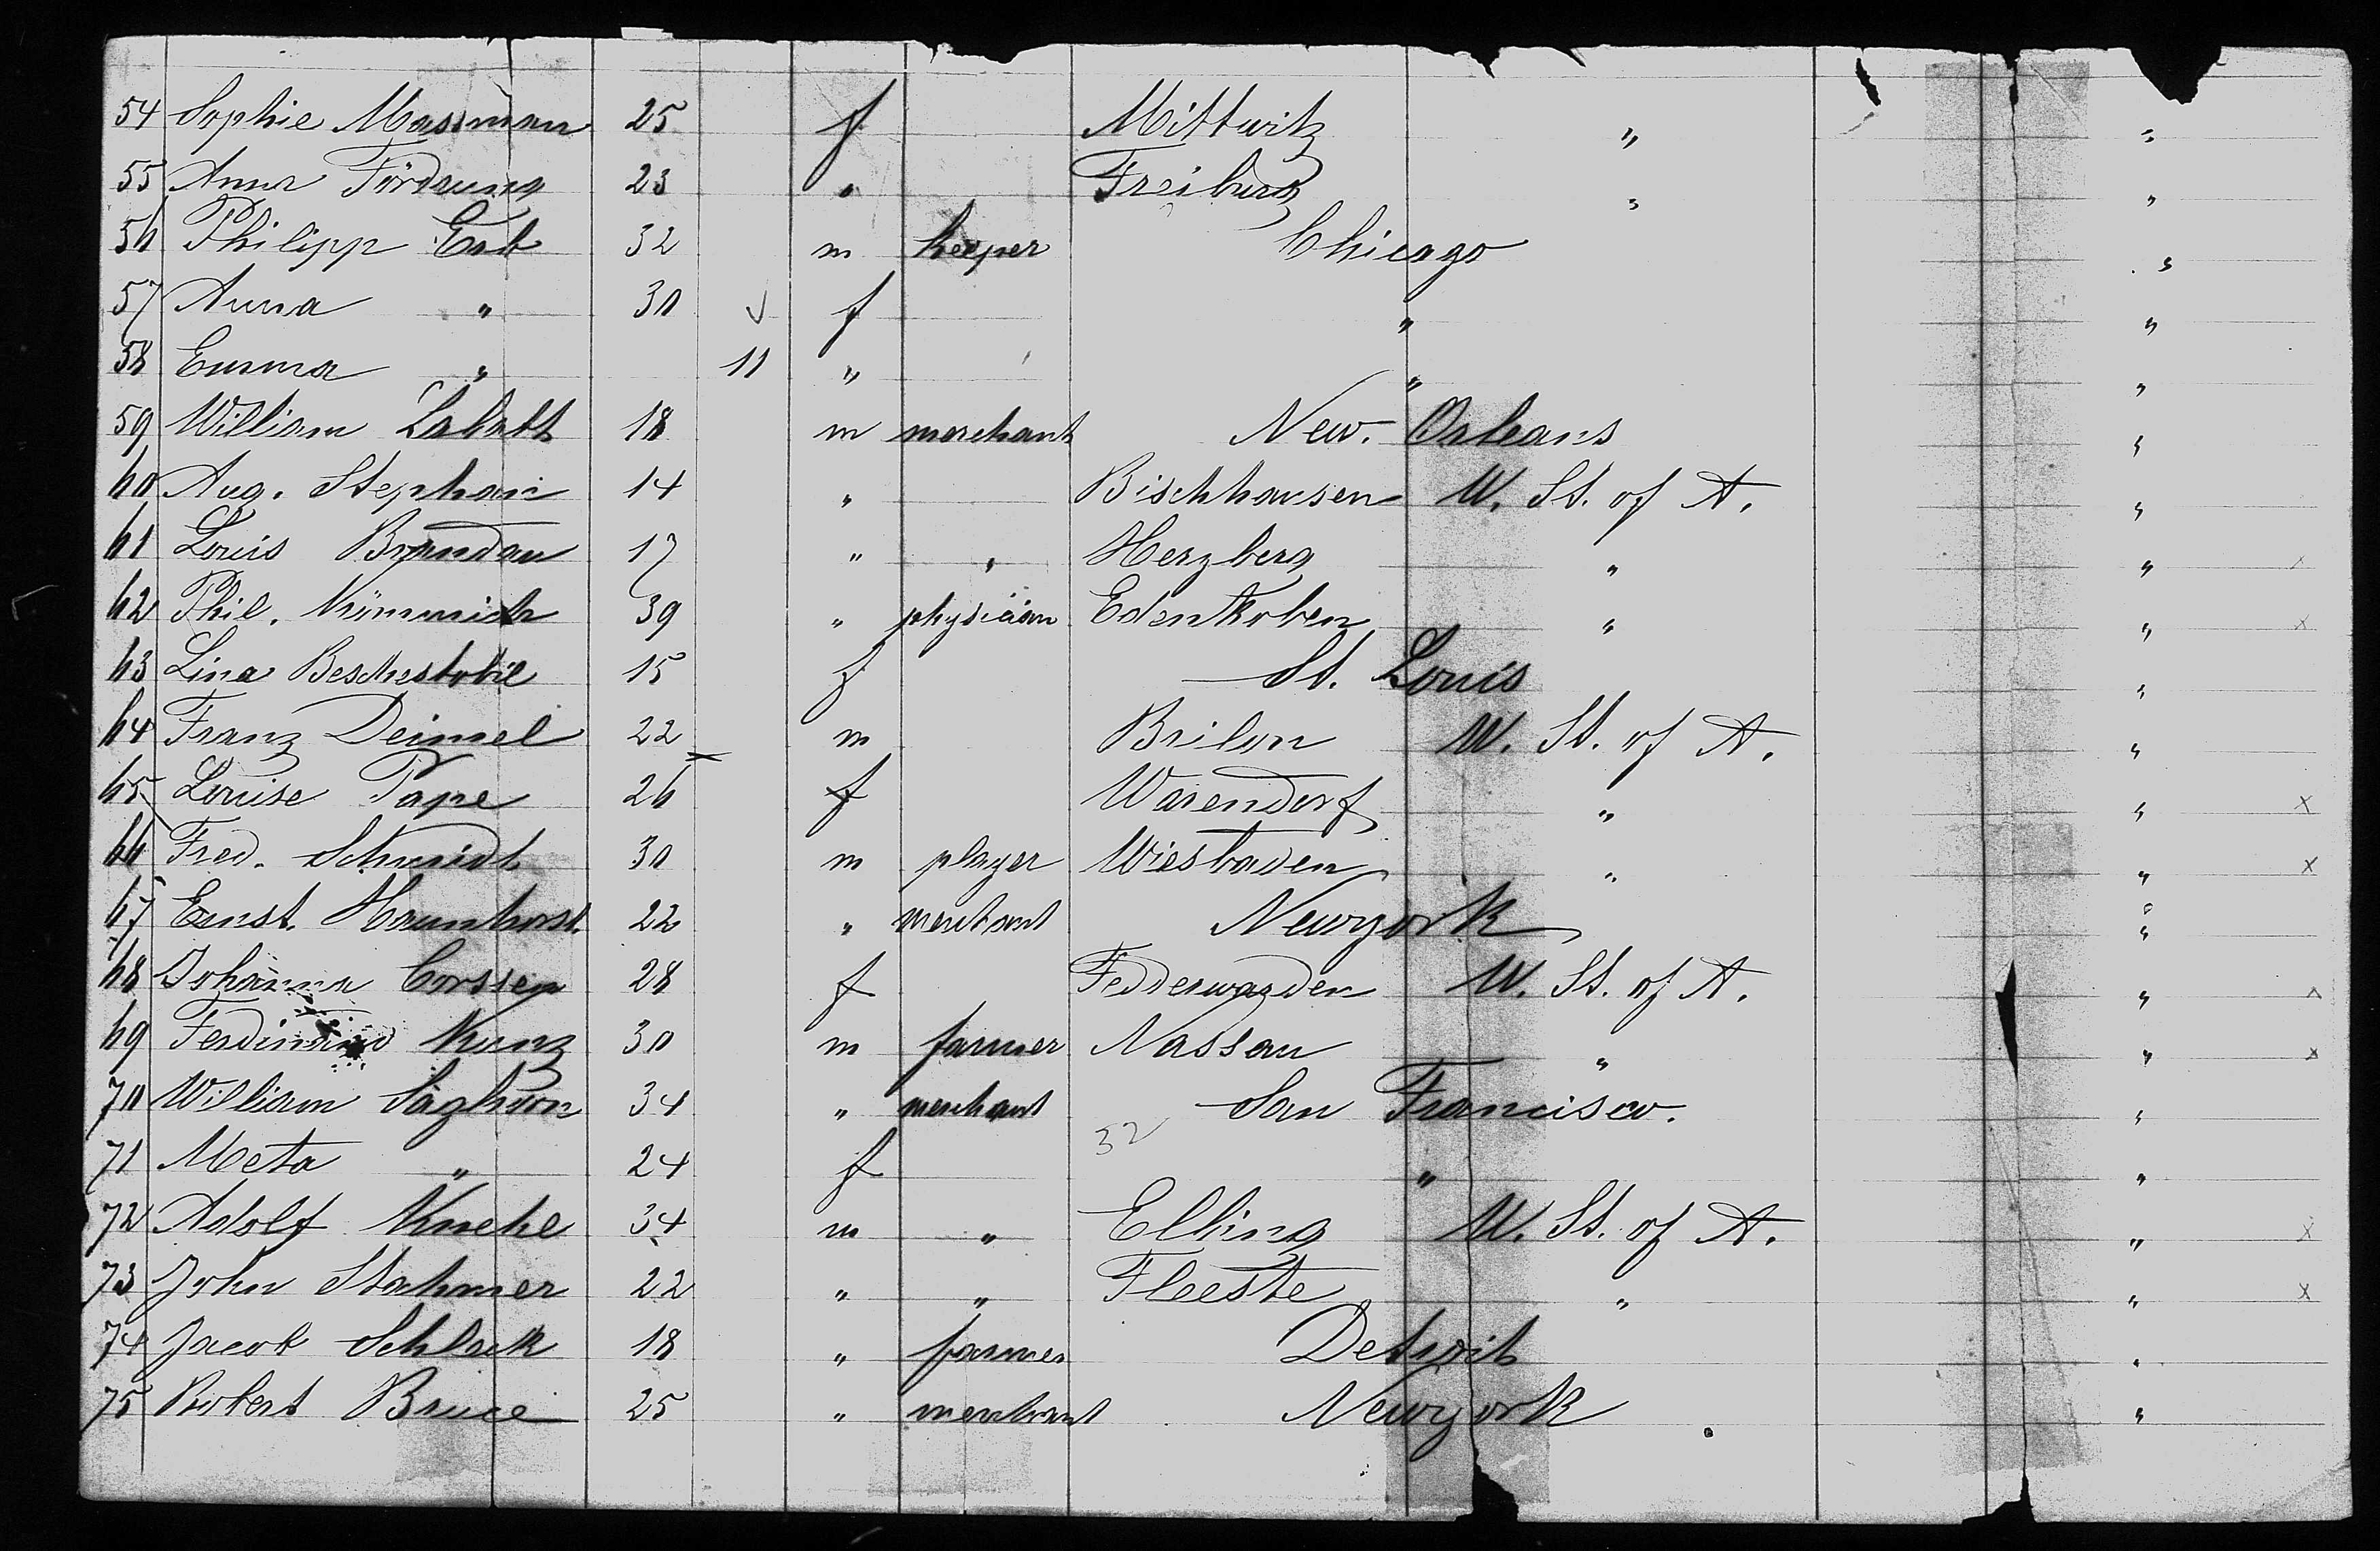 54 Sophie Massman 25 f Mittwitz " "
55 Anna Fördrung 23 " Freiburg " "
56 Philipp Erb 32 m keeper Chicago "
57 Anna " 30 f " "
58 Emma " 11 " " "
59 William Labatt 18 m merchant New. Orleans "
60 Aug. Stephan 14 " Bischhausen U. St. of A. "
61 Louis Brandau 17 " " Herzberg " " x
62 Phil. 39 " physician Edenkoben " " x
63 Lina 15 f St. Louis "
64 Franz Deimel 22 m Brilon U. St. of A. "
65 Louise Pape 26 f Warendorf " " x
66 Fred. Schmidt 30 m player Wiesbaden " " x
67 Ernst. Haunhorst. 22 " merchant Newyork "
68 Johanna Corssen 28 f Fedderwarden U. St. of A. " x
69 Ferdinand Kunz 30 m farmer Nassau " " x
70 William 34 " merchant San Francisco. "
32
71 Meta " 24 f " "
72 Adolf Kuehl 34 m " Elbing U. St. of A. " x
73 John Stahmer 22 " " Fleeste " " x
74 Jacob 18 " farmer Detroit "
75 Robert Bruce 25 " merchant Newyork "